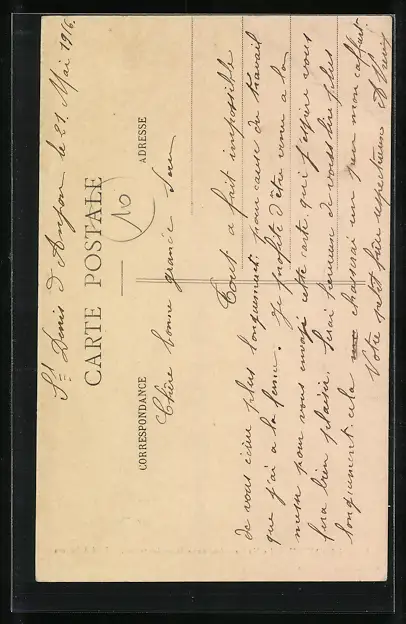 St Denis d'Anjou le 21 Mai 1916.
CARTE POSTALE
10
CORRESPONDANCE
ADRESSE
Chère bonne grande Sœur
Tout a fait impossible
de vous écrire plus longuement. pour cause du travail
que j'ai a la ferme. Je profite d'être venu a la
messe pour vous envoyé cette carte qui j'espère vous
fera bien plaisir. Serai heureuse de vous lire plus
longuement. cela chasserai un peu mon caffard
Votre petit frère respectueux